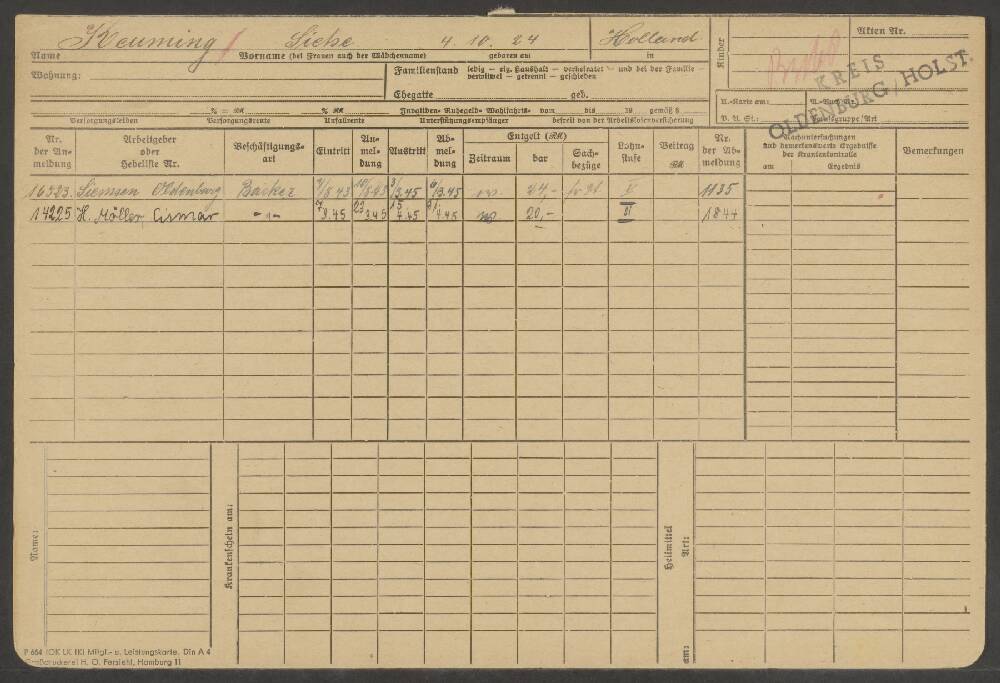 Keuming Sietse 4. 10. 24 Holland
Name Vorname (bei Frauen auch der Mädchenname) geboren am in
Kinder
Akten Nr.
KREIS
OLDENBURG / HOLST.
Wohnung:
Familienstand ledig – eig. Haushalt – verheiratet – und bei der Familie –
verwitwet – getrennt – geschieden
Ehegatte geb.
A.-Karte am:
V. A. St.:
% = RM % RM Invaliden- Ruhegeld- Wohlfahrts- vom bis 19 gemäß §
Versorgungsleiden Versorgungsrente Unfallrente Unterstützungsempfänger befreit von der Arbeitslosenversicherung
Nr. der Anmeldung
Arbeitgeber oder Hebeliste Nr.
Beschäftigungsart
Eintritt
Anmeldung
Austritt
Abmeldung
Entgelt (RM)
Zeitraum
bar
Sachbezüge
Lohnstufe
Beitrag RM
Nr. der Abmeldung
Nachuntersuchungen und bemerkenswerte Ergebnisse der Krankenkontrolle
am Ergebnis
Bemerkungen
16523. Siemsen Oldenburg Bäcker 3.45 24,- 1135
14225 H. Möller, Cismar -"- 3.45 23 3.45 15 4.45 4.45 20,- VI 1844
Name:
Krankenschein am:
Heilmittel
Art:
am:
P 664 (OK LK IK) Mitgl.- u. Leistungskarte. Din A 4
Großdruckerei H. O. Persiehl, Hamburg 11